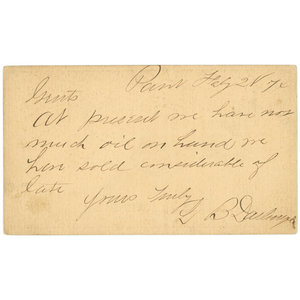 Feby 28
Gents
At present we have not
much oil on hand we
hav sold considerable of
late
Yours Truly
B